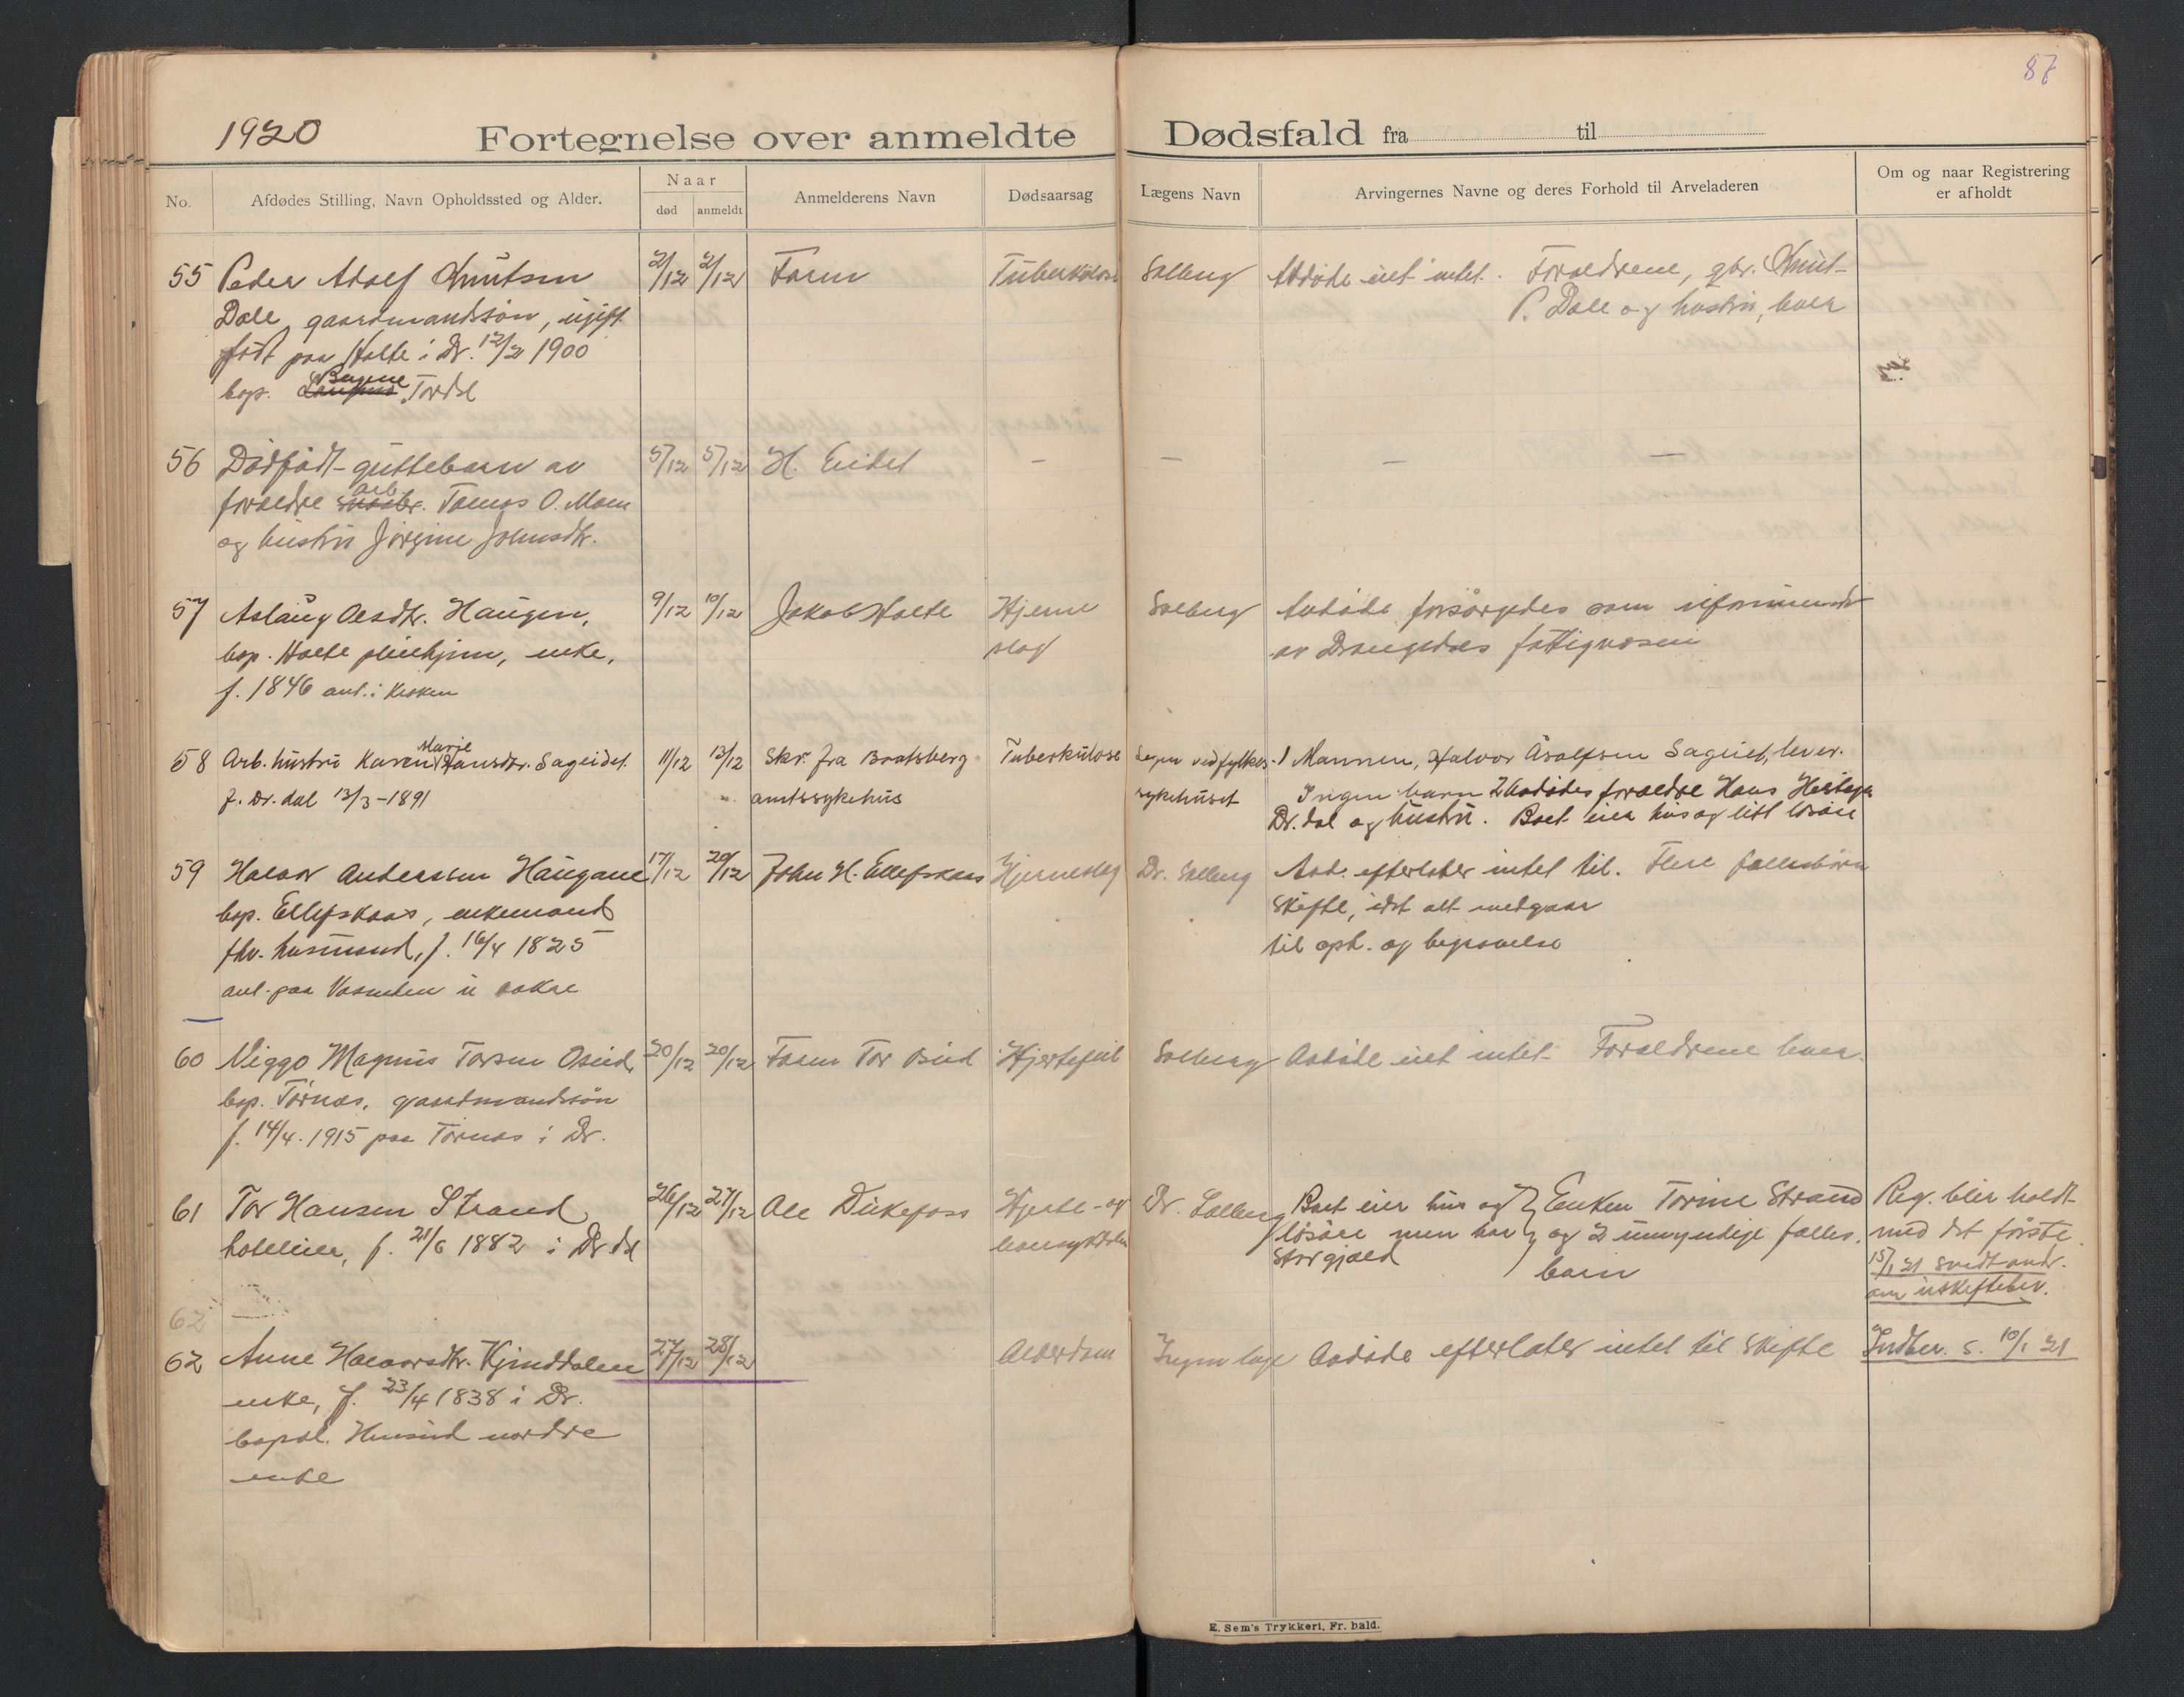 87
1920
Fortegnelse over anmeldte Dødsfald fra til
No.
Afdødes Stilling, Navn Opholdssted og Alder.
Naar
død
anmeldt
Anmelderens Navn
Dødsaarsag
Lægens Navn
Arvingernes Navne og deres Forhold til Arveladeren
Om og naar Registrering
er afholdt
55 Peder Adolf Knutsen
Dale, gaardmandssön, ugift
födt paa Holte i Dr. 12/2 1900
bop. Tordal
2/12 2/12 Faren
Tuberkulose
Solberg
Avdöde eiet intet. Foraeldrene, gbr. Knut
P. Dale og hustru, lever
56 Dödfödt guttebarn av
foraeldre arb. Tomas O. Moen
og hustru Jörgine Johnsdtr.
5/12 5/12 H. Eidet
—
—
— —
57 Aslaug Olsdtr. Haugen,
bop. Holte pleiehjem, enke,
f. 1846 ant. i
9/12 10/12 Jakob Holte
Hjerne
slag
Solberg
Avdöde forsörgedes som uformuende
av Drangedals fattigvæsen
58 Arb. hustru Karen Marie Hansdtr. Sageidet.
f. Dr.dal 13/3-1891
11/12 13/12
Skr. fra Bratsberg
amtssykehus
Tuberkulose
Lægen ved fylkes-
sykehuset
1 Mannen, Halvor Åsolfsen Sageiet, lever.
Ingen barn 2 Avdödes foraeldre Hans
Dr.dal og hustru. Boet eier hus og litt lösöre
59 Halvor Anderssen Haugane
bop. Ellefskaas, enkemand
fhv. husmand, f. 16/4 1825
ant. paa
17/12 20/12 John H. Ellefskaas
Hjerneslag
Dr. Solberg
Avd. efterlater intet til. Flere fællesbörn
Skifte, idet alt medgaar
til oph. og begravelse
60 Viggo Magnus Torsen Oseid,
bop. Törnes, gaardmandssön
f. 14/4. 1915 paa Törnes i Dr.
20/12 20/12 Faren Tor Oseid
Hjertefeil
Solberg
Avdöde eiet intet. Foraeldrene lever.
61 Tor Hansen Strand
hoteleier, f. 21/6 1882 i Dr.dal
26/12 27/12 Ole Dükefoss
Hjerte- og
Dr. Solberg
Boet eier hus og } Enken Torine Strand
lösöre men har } og 2 umyndige fælles.
Stor gjæld } barn
Reg. blir holdt
med det förste.
15/1 21 sendt andr.
om uskiftebev.
62
62 Anne Halvorsdtr. Kjinddalen
enke, f. 23/4 1838 i Dr.
bopæl. Henseid nordre
enke
27/12 28/12
Alderdom
Ingen læge
Avdöde efterlater intet til Skifte
Indber. S. 10/1 21
E. Sem's Trykkeri, Fr.hald.